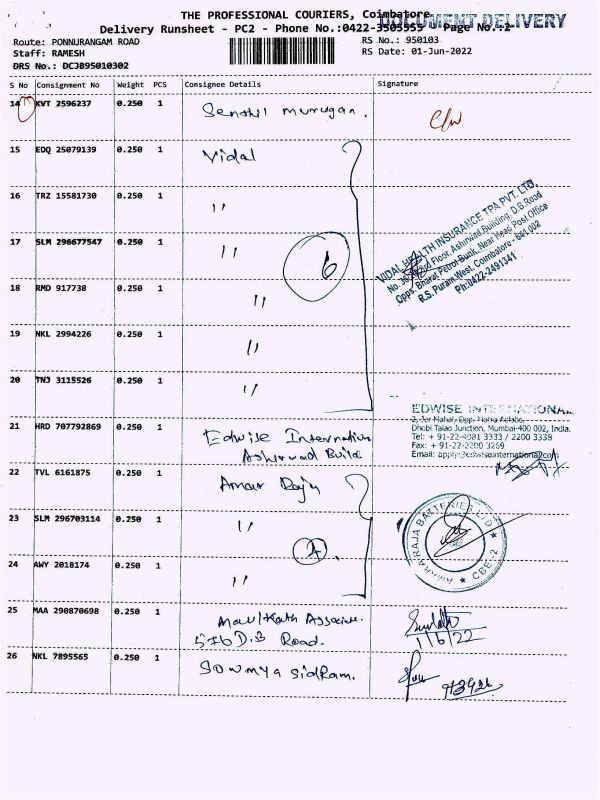 THE PROFESSIONAL COURIERS, Coimbatore
DOCUMENT DELIVERY
Delivery Runsheet - PC2 - Phone No.:0422-3505555 - Page No.:2
Route: PONNURANGAM ROAD
RS No.: 950103
Staff: RAMESH
RS Date: 01-Jun-2022
DRS No.: DCJB95010302
S No Consignment No Weight PCS Consignee Details Signature
14 KVT 2596237 0.250 1 Senthil Murugan.
15 EDQ 25079139 0.250 1 Vidal
16 TRZ 15581730 0.250 1 "
17 SLM 296677547 0.250 1 "
6
VIDAL HEALTH INSURANCE TPA PVT. LTD.
3rd Floor, Ashirwad Building, D.B.Road
Opps. Bharat Petrol Bunk, Near Head Post Office
R.S. Puram West, Coimbatore - 641 002
Ph:0422-2491341
18 RMD 917738 0.250 1 "
19 NKL 2994226 0.250 1 "
20 TNJ 3115526 0.250 1 "
21 HRD 707792869 0.250 1 Edwise Internation
Ashirwad Build
EDWISE INTERNATIONAL
Dhobi Talao Junction, Mumbai-400 002, India.
Tel: + 91-22-4081 3333 / 2200 3338
Fax: + 91-22-2200 3269
22 TVL 6161875 0.250 1 Amar Raju
23 SLM 296703114 0.250 1 "
AMARA RAJA BATTERIES LTD ★ CBE-2 ★
24 AWY 2018174 0.250 1 "
25 MAA 290870698 0.250 1
576 D.B Road.
1/6/22
26 NKL 7895565 0.250 1 Sowmya sidram.